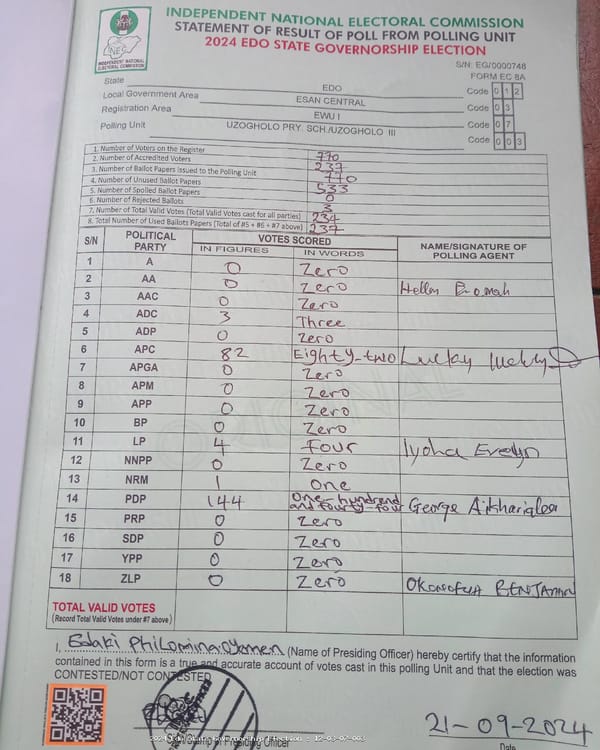 INDEPENDENT NATIONAL ELECTORAL COMMISSION
STATEMENT OF RESULT OF POLL FROM POLLING UNIT
2024 EDO STATE GOVERNORSHIP ELECTION
INEC
INDEPENDENT NATIONAL
ELECTORAL COMMISSION
S/N: EG/0000748
FORM EC 8A
State EDO Code 0 1 2
Local Government Area ESAN CENTRAL Code 0 3
Registration Area EWU I Code 0 7
Polling Unit UZOGHOLO PRY. SCH./UZOGHOLO III Code 0 0 3
1. Number of Voters on the Register 770
2. Number of Accredited Voters 237
3. Number of Ballot Papers issued to the Polling Unit 770
4. Number of Unused Ballot Papers 533
5. Number of Spoiled Ballot Papers 0
6. Number of Rejected Ballots 3
7. Number of Total Valid Votes (Total Valid Votes cast for all parties) 234
8. Total Number of Used Ballots Papers (Total of #5 + #6 + #7 above) 237
S/N POLITICAL PARTY VOTES SCORED NAME/SIGNATURE OF POLLING AGENT
IN FIGURES IN WORDS
1 A 0 Zero
2 AA 0 Zero Hellen
3 AAC 0 Zero
4 ADC 3 Three
5 ADP 0 Zero
6 APC 82 Eighty-two Lucky lucky
7 APGA 0 Zero
8 APM 0 Zero
9 APP 0 Zero
10 BP 0 Zero
11 LP 4 Four Iyoha Evelyn
12 NNPP 0 Zero
13 NRM 1 One
14 PDP 144 One-hundrend and fourty-four George
15 PRP 0 Zero
16 SDP 0 Zero
17 YPP 0 Zero
18 ZLP 0 Zero OKONOFUA BENJAMIN
TOTAL VALID VOTES
(Record Total Valid Votes under #7 above)
I, Edaki Philomina Oyemen (Name of Presiding Officer) hereby certify that the information
contained in this form is a true and accurate account of votes cast in this polling Unit and that the election was
CONTESTED/NOT CONTESTED
2024 Edo State Governorship Election - 12-03-07-003
Presiding Officer
21-09-2024
Date